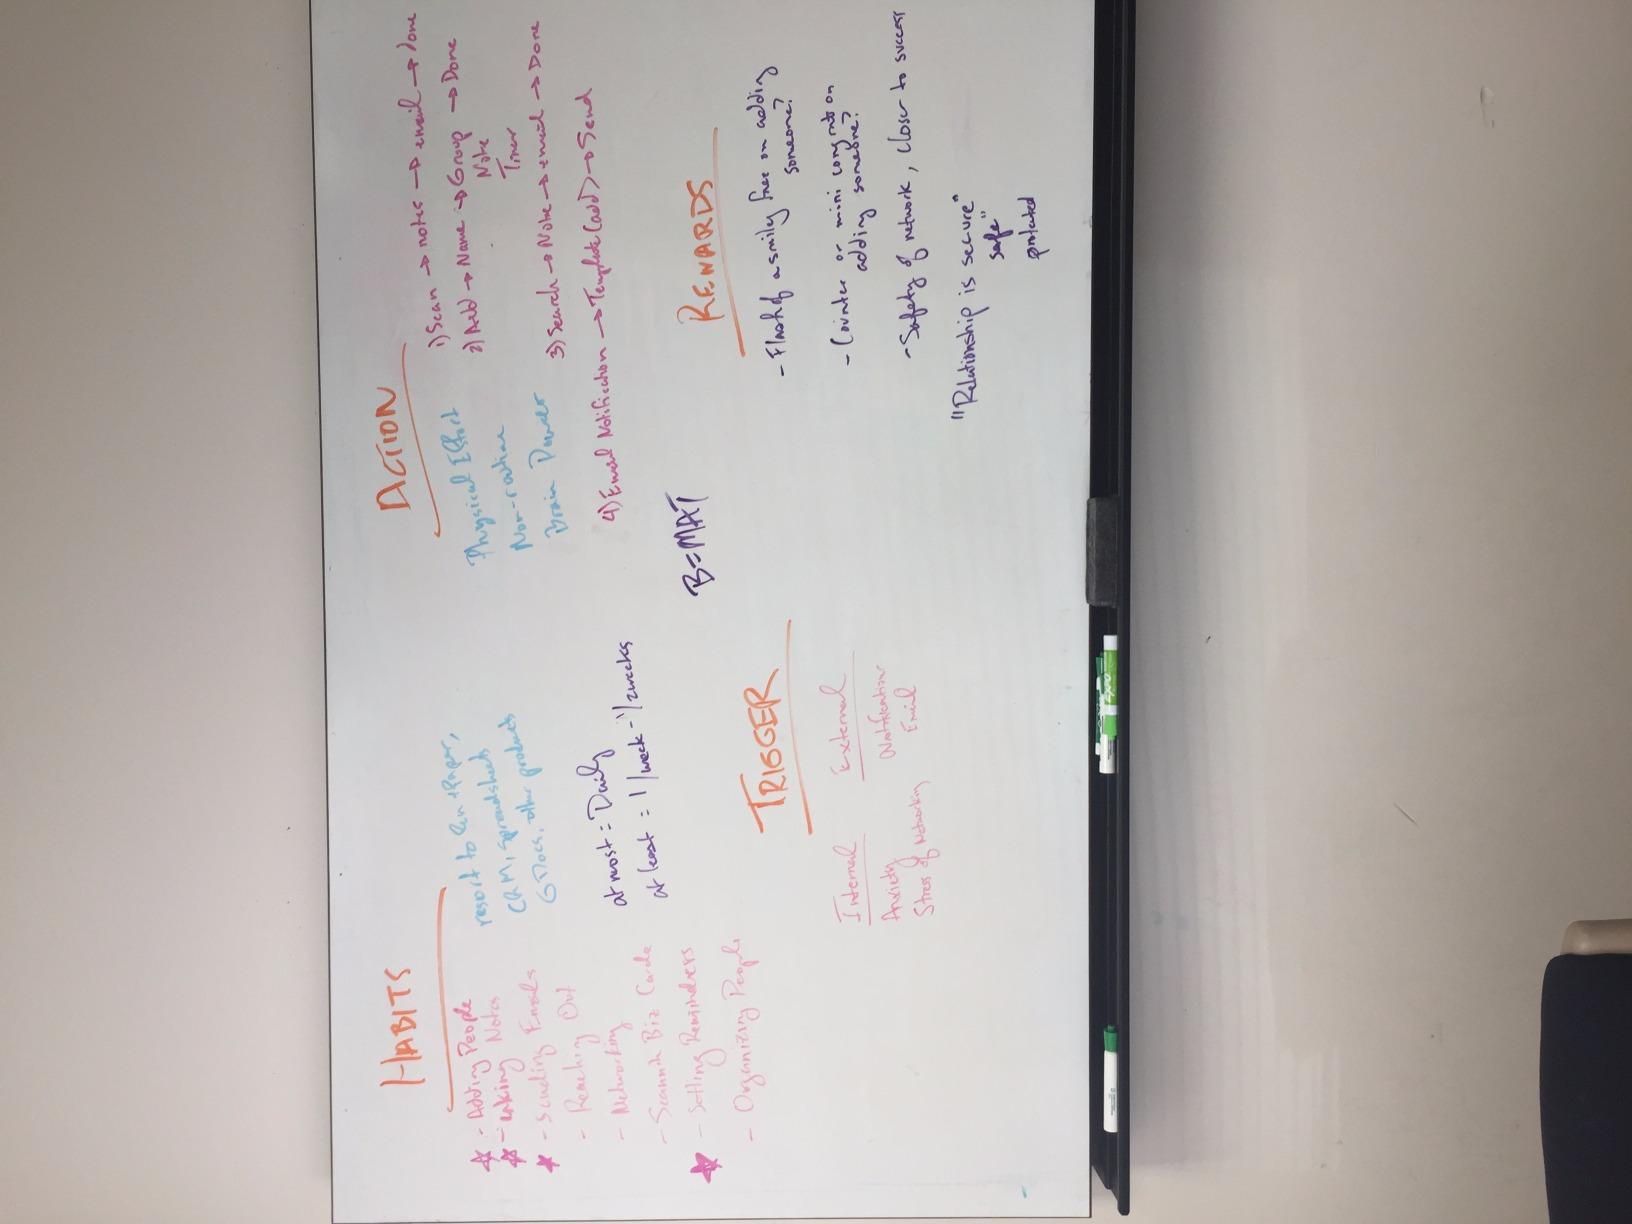 HABITS
- Adding People
- Taking Notes
- Sending Emails
- Reaching Out
- Networking
- Scannin Biz Cards
- Setting Reminders
- Organizing People
resort to Pen + Paper,
CRM, spreadsheets
GDocs, other products
at most = Daily
at least = 1/week - 1/2weeks
ACTION
Physical Effort
Non-routine
Brain Power
1) Scan → notes → email → done
2) Add → Name → Group → Done
Note
Timer
3) Search → Note → email → Done
4) Email Notification → Template (add) → Send
B=MAT
TRIGGER
Internal
Anxiety
Stress of Networking
External
Notification
Email
REWARDS
- Flash of a smiley face on adding
someone?
- Counter or mini congrats on
adding someone?
- Safety of network, closer to success
"Relationship is secure"
safe"
protected